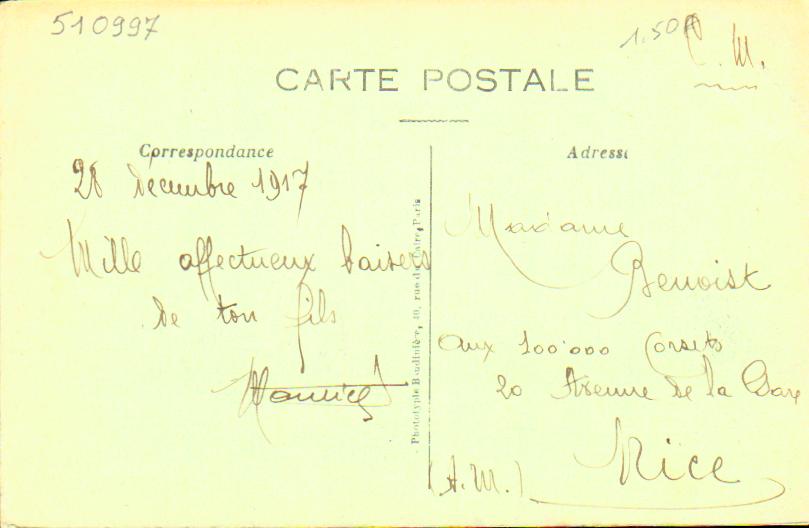 510997
1.50
C. M.
CARTE POSTALE
Correspondance
28 décembre 1917
Mille affectueux baisers
de ton fils
Maurice
Phototypie Baudinière, 40, rue du Caire, Paris
Adresse
Madame
Benoist
Aux 100.000 Corsets
20 Avenue de la Gare
Nice
(A.M.)